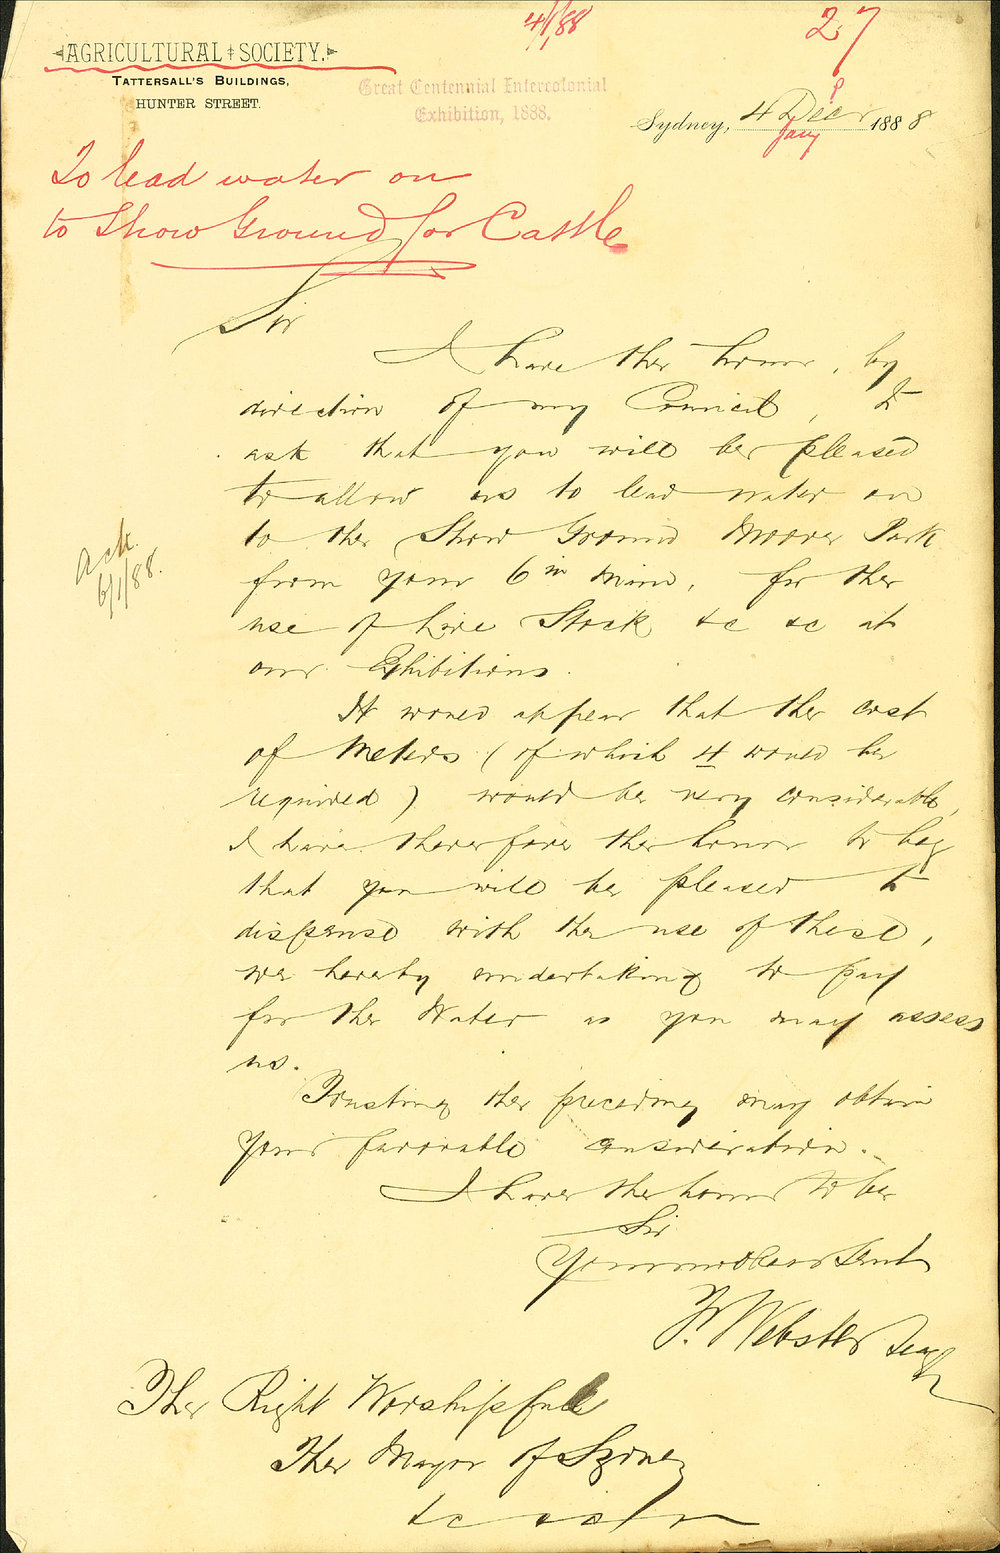 4/1/88
27
AGRICULTURAL SOCIETY.
TATTERSALL'S BUILDINGS,
HUNTER STREET.
Great Centennial Intercolonial
Exhibition, 1888.
Sydney, 4 Decr 1888
Jany
To lead water on
to Show Ground for Cattle
Sir
I have the honor, by
direction of my Council, to
ask that you will be pleased
to allow us to lead water on
to the Show Ground Moore Park
from your 6 in Main, for the
use of Live Stock &c &c at
our Exhibitions.
Ack.
6/1/88.
It would appear that the cost
of Meters (of which 4 would be
required) would be very considerable,
I have therefore the honor to beg
that you will be pleased to
dispense with the use of these,
we hereby undertaking to pay
for the Water as you may assess
us.
Trusting the preceding may obtain
your favorable consideration.
I have the honor to be
Sir
Your Servt
F. Webster Secy
The Right Worshipfull
The Mayor of Sydney
&c &c &c